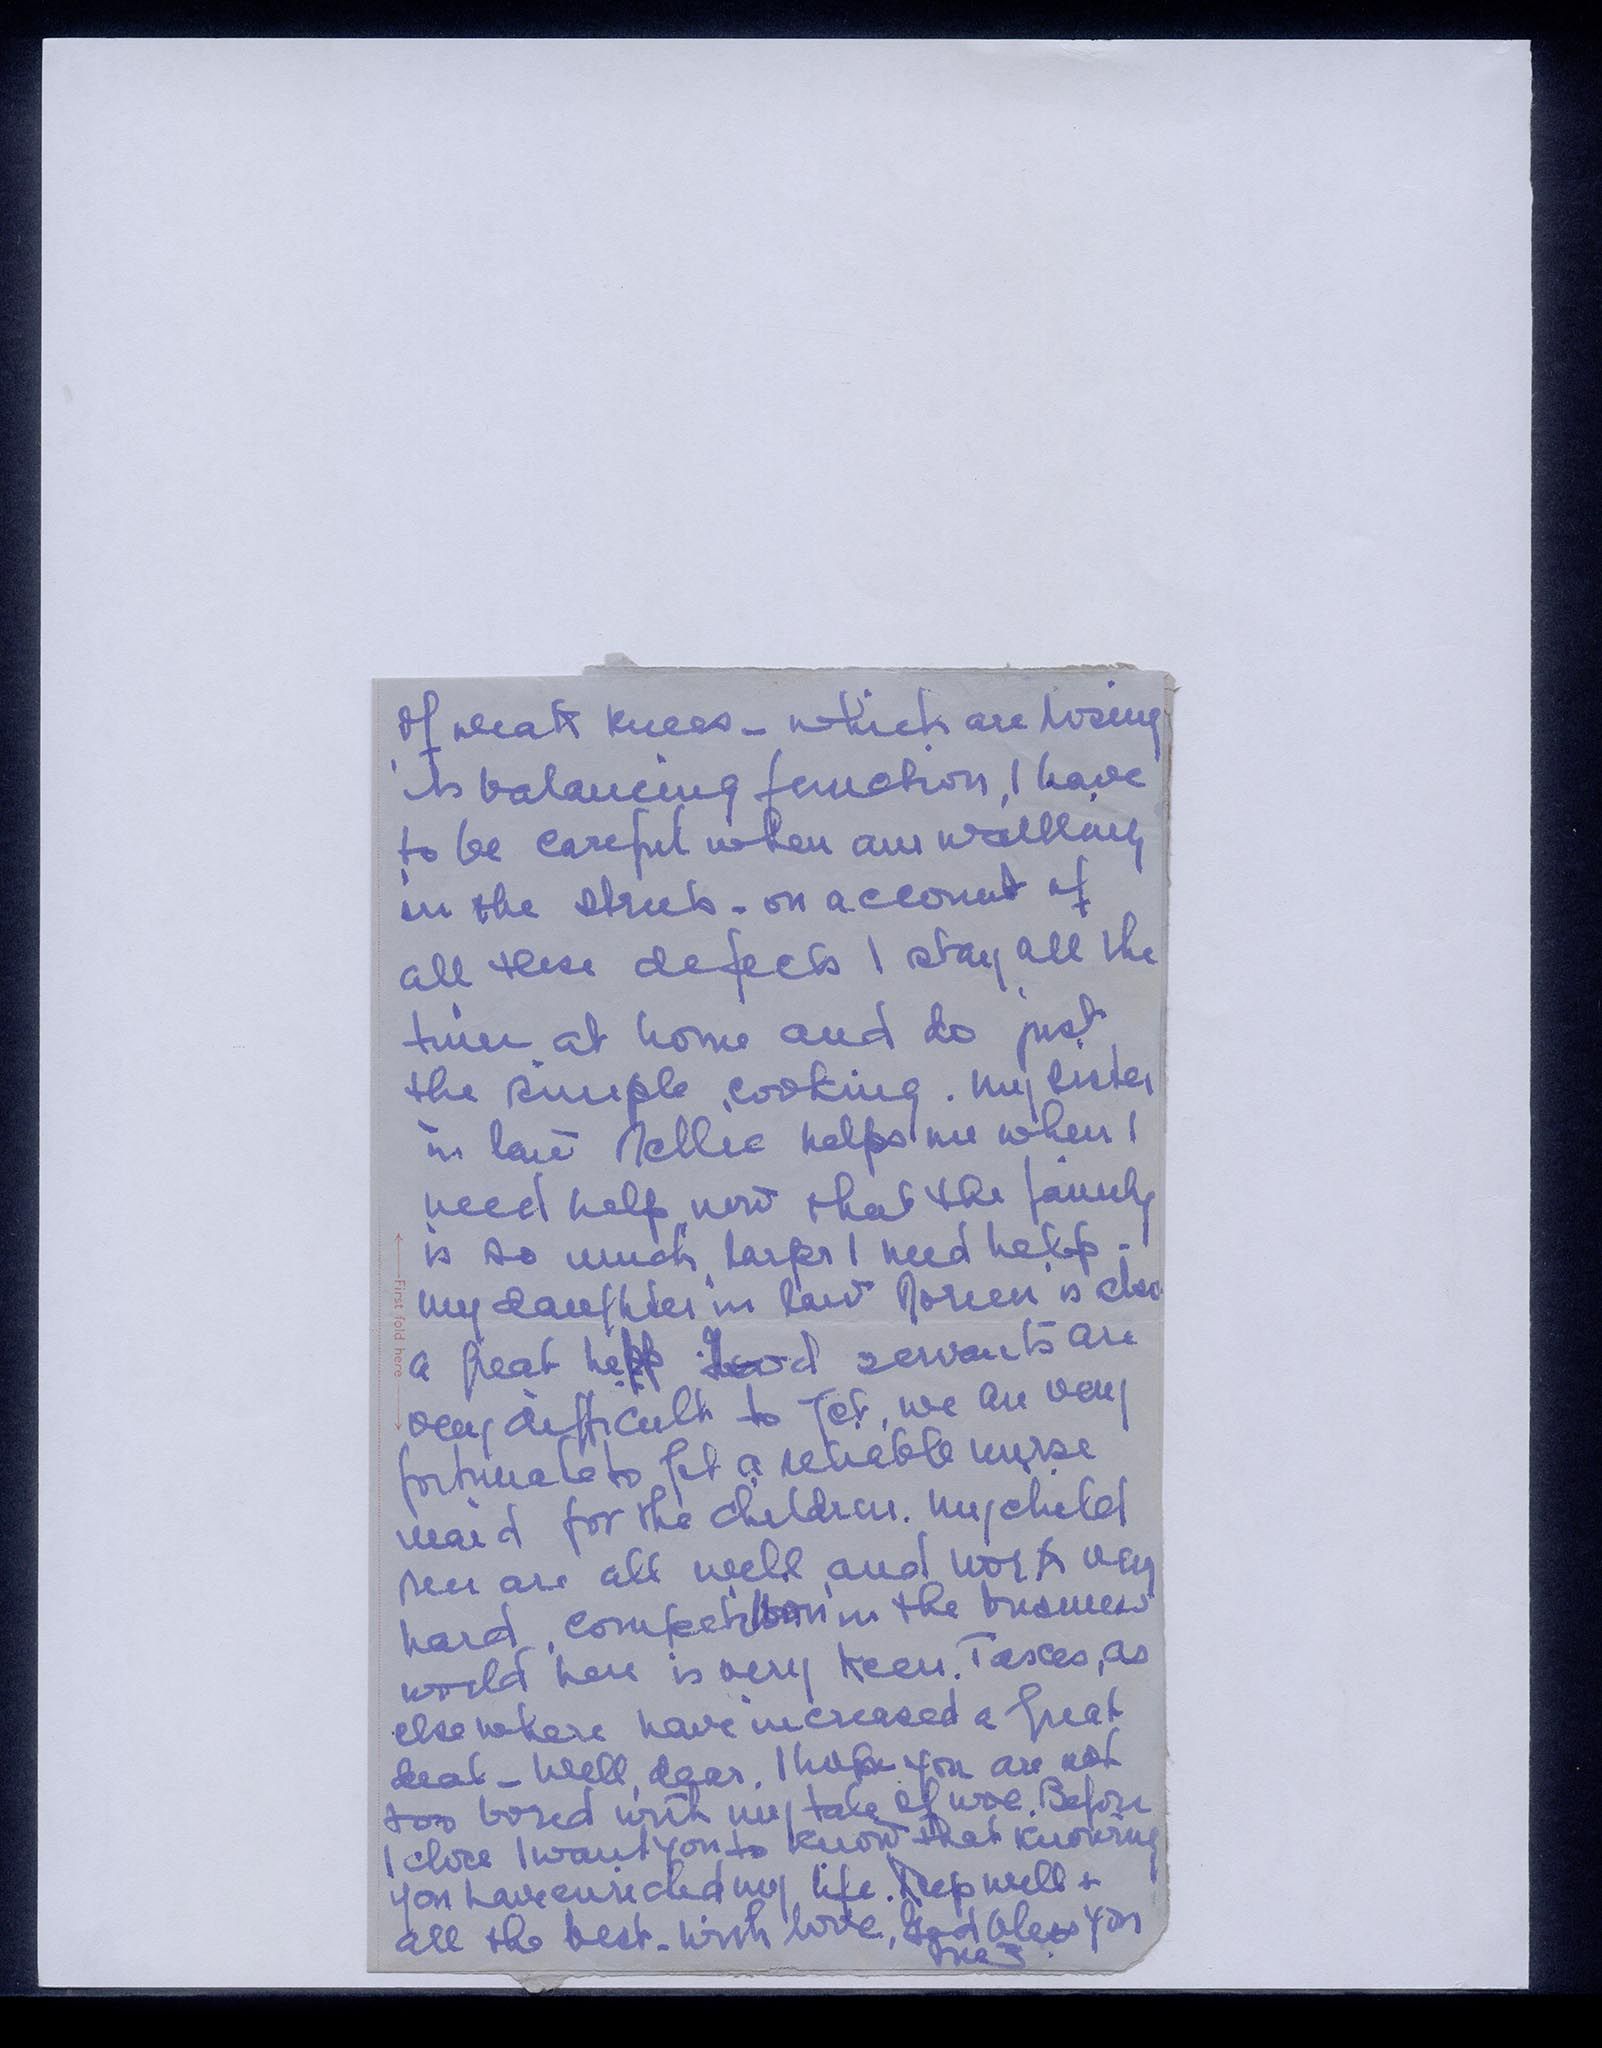 of weak knees - which are losing
its balancing function, I have
to be careful when am walking
in the streets - on account of
all these defects I stay all the
time at home and do just
the simple cooking. My sister
in law Nellie helps me when I
need help, now that the family
is so much larger I need help -
my daughter in law Noreen is also
a great help Good servants are
very difficult to get, we are very
fortunate to get a reliable nurse
maid for the children. My child
ren are all well and work very
hard, competition in the business
world here is very keen. Taxes, as
elsewhere have increased a great
deal - Well, dear, I hope you are not
too bored with my tale of woe. Before
I close I want you to know that knowing
you have enriched my life. Keep well +
all the best - with love, God bless you
First fold here